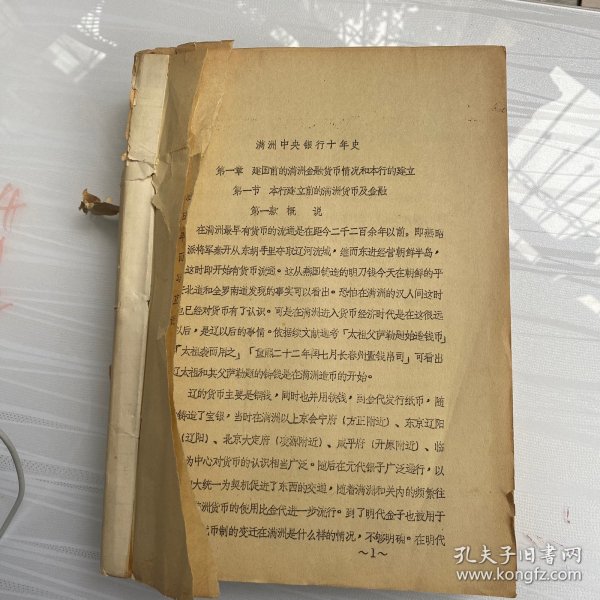 满洲中央银行十年史
第一章 建国前的满洲金融货币情况和本行的建立
第一节 本行建立前的满洲货币及金融
第一款 概 说
在满洲最早有货币的流通是在距今二千二百余年以前。即燕昭
派将军秦开从东胡手里夺取辽河流域，继而东进经营朝鲜半岛，
这时即开始有货币流通。这从燕国铸造的明刀钱今天在朝鲜的平
北道和全罗南道发现的事实可以看出。恐怕在满洲的汉人间这时
已经对货币有了认识。可是在满洲进入货币经济时代是在这很远
以后，是辽以后的事情。依据续文献通考「太祖父萨勒剔始造钱币」
「太祖袭而用之」「重熙二十二年闰七月长春州置钱帛司」可看出
辽太祖和其父萨勒剔的铸钱是在满洲造币的开始。
辽的货币主要是铜钱，同时也并用铁钱，到金代发行纸币，随
铸造了宝银，当时在满洲以上京会宁府（方正附近）、东京辽阳
（辽阳）、北京大定府（凌源附近）、咸平府（开原附近）、临
为中心对货币的认识相当广泛。随后在元代银子广泛通行，以
大统一为契机促进了东西的交通，随着满洲和关内的频繁往
洲货币的使用比金代进一步流行。到了明代金子也被用于
币制的变迁在满洲是什么样的情况，不够明确。在明代
～1～
孔夫子旧书网
www.kongfz.com